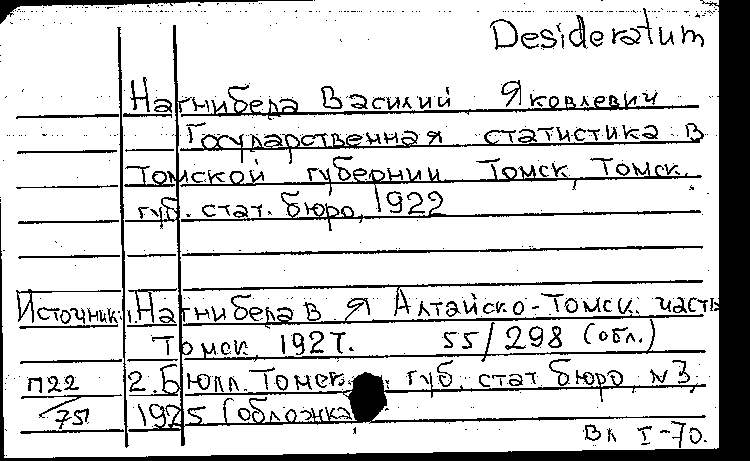 Desideratum
Нагнибеда Василий Яковлевич
Государственная статистика в
Томской губернии Томск, Томск.
губ. стат. бюро, 1922
Источник: 1. Нагнибеда В Я Алтайско-Томск. часть
Томск, 1927. 55/298 (обл.)
П22 2. Бюлл. Томск. губ. стат бюро, №3,
/751 1925 (обложка
Вл I-70.